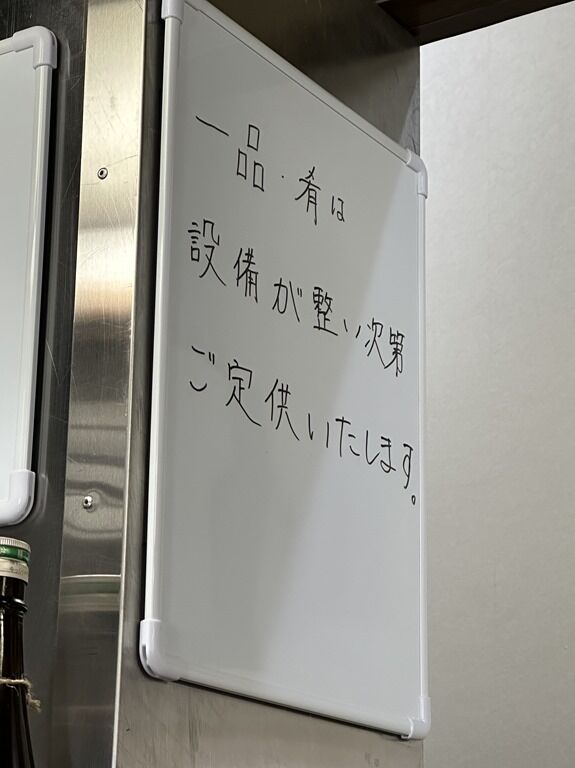 一品・肴は
設備が整い次第
ご定供いたします。